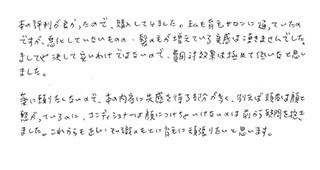 本の評判が良かったので、購入してみました。私も育毛サロンに通っていたの
ですが、悪化していないものの、髪の毛が増えている実感は湧きませんでした。
ましてや決して安いわけではないので、費用対効果は極めて低いなと思い
ました。
薬に頼りたくないので、本の内容に共感を持てる部分が多く、例えば頭皮は顔と
繋がっているのに、コンディショナーは顔につけちゃいけないのは前から疑問を抱き
ました。これからも正しい知識のもとに育毛に頑張りたいと思います。